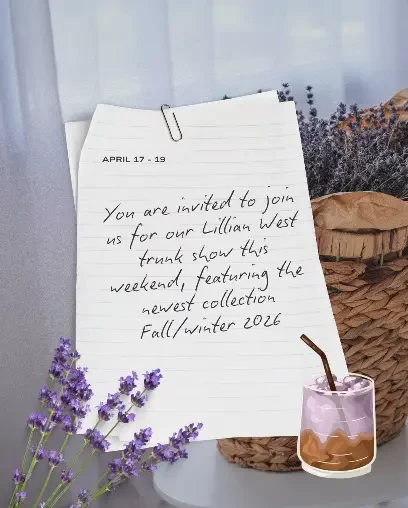 APRIL 17 - 19
You are invited to join
us for our Lillian West
trunk show this
weekend, featuring the
newest collection
Fall/winter 2026